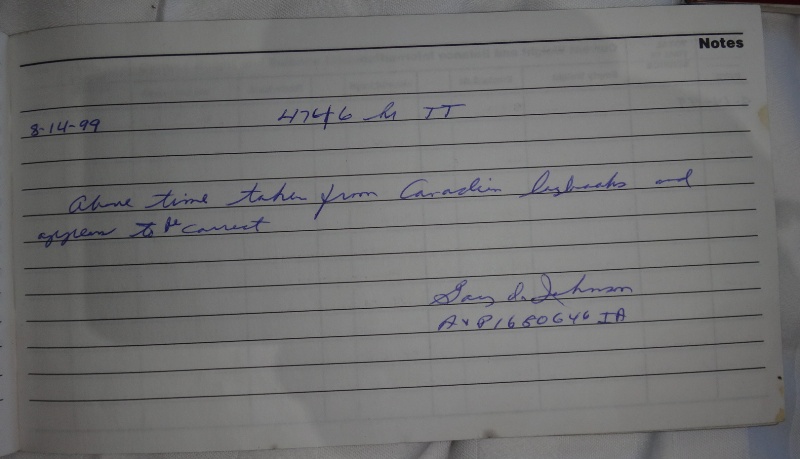 Notes
8-14-99 4746 hr TT
Above time taken from Canadian logbooks and
appears to be correct
Gary L. Johnson
A+P1680646 IA